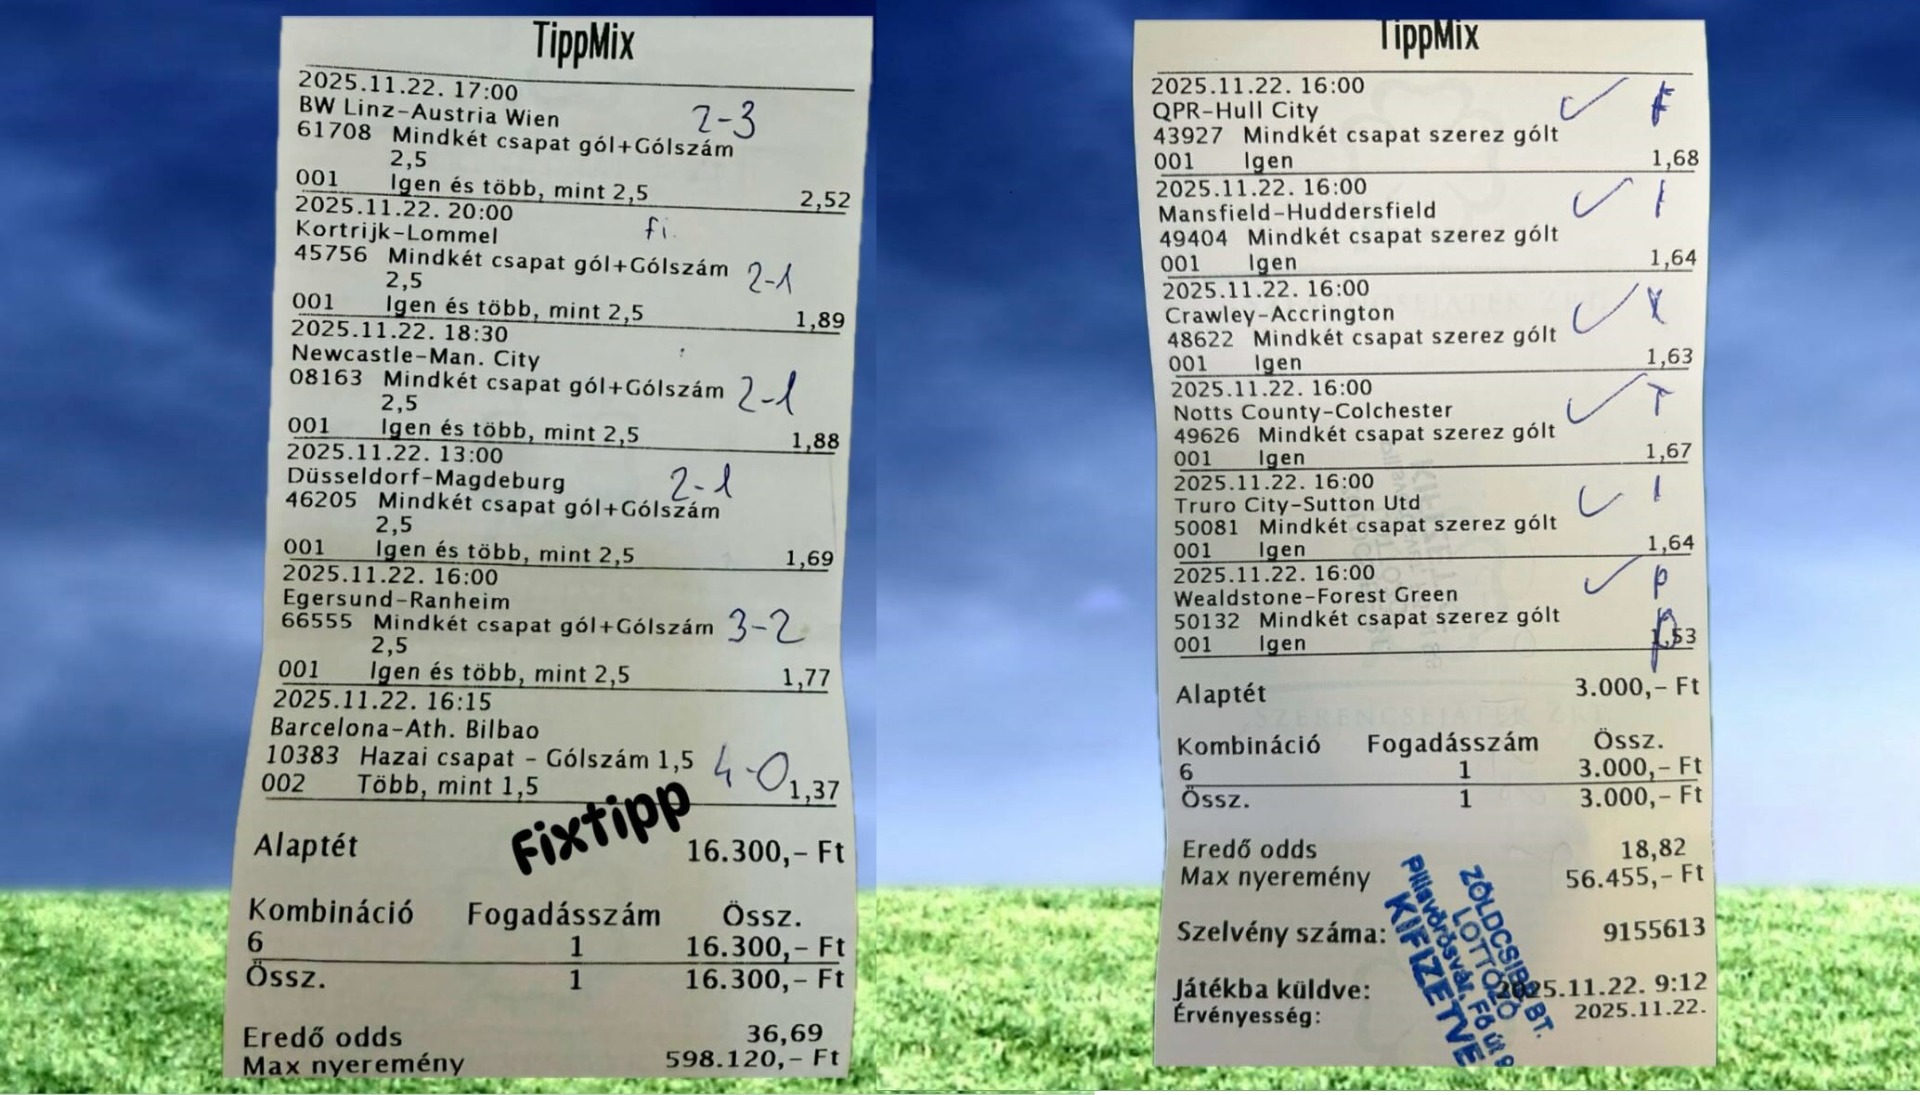 TippMix
2025.11.22. 17:00
BW Linz-Austria Wien
2-3
61708 Mindkét csapat gól+Gólszám
2,5
001 Igen és több, mint 2,5 2,52
2025.11.22. 20:00
Kortrijk-Lommel
fi.
45756 Mindkét csapat gól+Gólszám 2-1
2,5
001 Igen és több, mint 2,5 1,89
2025.11.22. 18:30
Newcastle-Man. City
08163 Mindkét csapat gól+Gólszám 2-1
2,5
001 Igen és több, mint 2,5 1,88
2025.11.22. 13:00
Düsseldorf-Magdeburg 2-1
46205 Mindkét csapat gól+Gólszám
2,5
001 Igen és több, mint 2,5 1,69
2025.11.22. 16:00
Egersund-Ranheim
66555 Mindkét csapat gól+Gólszám 3-2
2,5
001 Igen és több, mint 2,5 1,77
2025.11.22. 16:15
Barcelona-Ath. Bilbao
10383 Hazai csapat - Gólszám 1,5 4-0
002 Több, mint 1,5 1,37
Fixtipp
Alaptét 16.300,- Ft
Kombináció Fogadásszám Össz.
6 1 16.300,- Ft
Össz. 1 16.300,- Ft
Eredő odds 36,69
Max nyeremény 598.120,- Ft
TippMix
2025.11.22. 16:00
QPR-Hull City
43927 Mindkét csapat szerez gólt
001 Igen 1,68
2025.11.22. 16:00
Mansfield-Huddersfield
49404 Mindkét csapat szerez gólt
001 Igen 1,64
2025.11.22. 16:00
Crawley-Accrington
48622 Mindkét csapat szerez gólt
001 Igen 1,63
2025.11.22. 16:00
Notts County-Colchester
49626 Mindkét csapat szerez gólt
001 Igen 1,67
2025.11.22. 16:00
Truro City-Sutton Utd
50081 Mindkét csapat szerez gólt
001 Igen 1,64
2025.11.22. 16:00
Wealdstone-Forest Green
50132 Mindkét csapat szerez gólt
001 Igen 1,53
Alaptét 3.000,- Ft
Kombináció Fogadásszám Össz.
6 1 3.000,- Ft
Össz. 1 3.000,- Ft
Eredő odds 18,82
Max nyeremény 56.455,- Ft
Szelvény száma: 9155613
Játékba küldve: 2025.11.22. 9:12
Érvényesség: 2025.11.22.
ZÖLDCSIBE BT.
LOTTÓZÓ
Pilisvörösvár, Fő út 9
KIFIZETVE